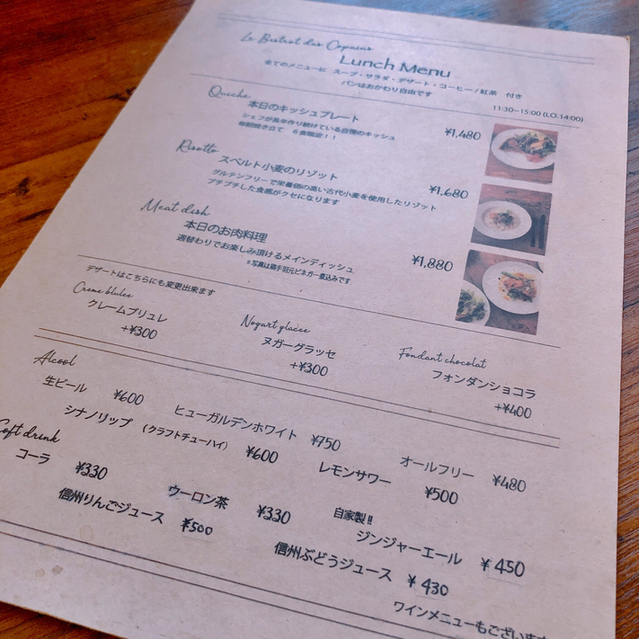 Le Bistrot des Copains
Lunch Menu
全てのメニューに スープ・サラダ・デザート・コーヒー/紅茶 付き
パンはおかわり自由です
11:30~15:00 (LO.14:00)
Quiche
本日のキッシュプレート ¥1,480
シェフが長年作り続けている自慢のキッシュ
毎朝焼き立て 6食限定!!
Risotto
スペルト小麦のリゾット ¥1,680
グルテンフリーで栄養価の高い古代小麦を使用したリゾット
プチプチした食感がクセになります
Meat dish
本日のお肉料理 ¥1,880
週替わりでお楽しみ頂けるメインディッシュ
※写真は鶏手羽元ビネガー煮込みです
デザートはこちらにも変更出来ます
Creme blulee Nogart glacee Fondant chocolat
クレームブリュレ ヌガーグラッセ フォンダンショコラ
+¥300 +¥300 +¥400
Alcool
生ビール ¥600 ヒューガルデンホワイト ¥750 オールフリー ¥480
シナノリップ (クラフトチューハイ) ¥600 レモンサワー ¥500
Soft drink
コーラ ¥330 ウーロン茶 ¥330 自家製!! ジンジャーエール ¥450
信州りんごジュース ¥500 信州ぶどうジュース ¥430
ワインメニューもございます